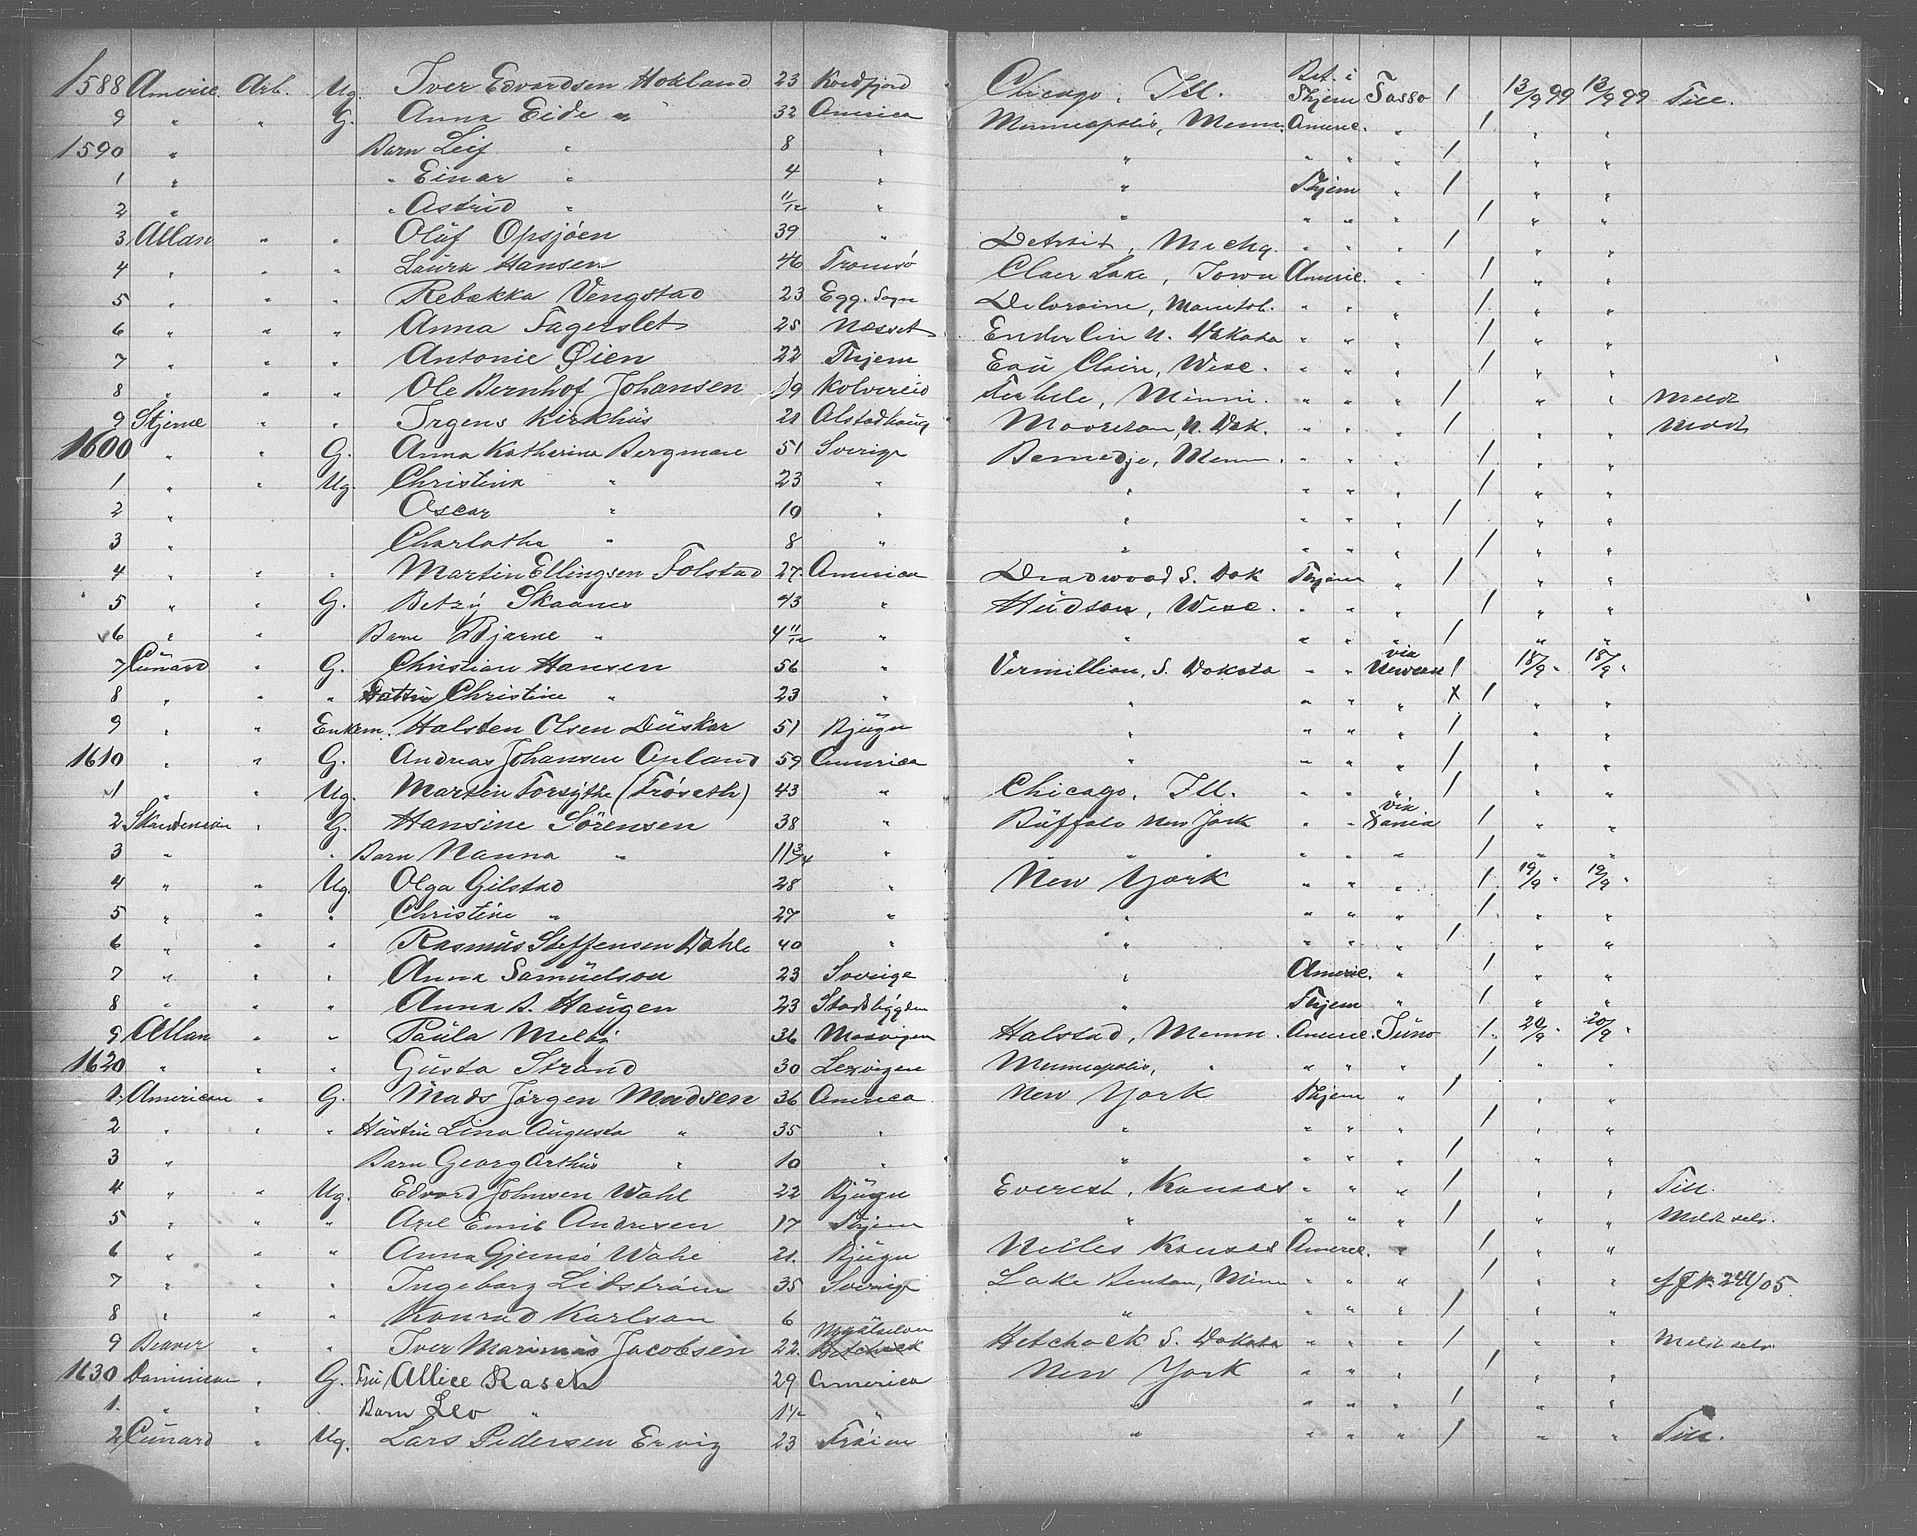 1588 Americ. Arb. Ug. Iver Edvardsen Hokland 23 Kvedfjord Chicago, Ill. Bet. i Thjem Tasso 1 13/9 99 13/9 99 Till.
9 " " G. Anna Eide " 32 America Minneapolis, Minn. Americ. " 1 " "
1590 " Barn Leif " 8 " " " " " 1 " "
1 " " Einar " 4 " " Thjem " 1 " "
2 " " Astrid " 11/12 " " " " " 1 " "
3 Allan " " Oluf Opsjøen 39 " Detroit, Michg. " " " 1 " "
4 " " " Laura Hansen 46 Tromsö Claer Lake, Iowa Americ. " 1 " "
5 " " " Rebekka Vengstad 23 Egg. Sogn Deloraine, Manitob. " " " 1 " "
6 " " " Anna Fagerslet 25 Nesset Enderlin N. Dakota " " " 1 " "
7 " " " Antonie Øien 22 Thjem Eau Claire, Wisc. " " " 1 " "
8 " " " Ole Bernhof Johansen 19 Kolvereid Minn. " " " 1 " " Meldt
9 Stjerne " " Irgens Kirkhus 21 Alstadhaug Mooreton, N. Dak. " " " 1 " " Meldt
1600 " " G. Anna Katherina Bergman 51 Sverige Bemedje, Minn. " " " 1 " "
1 " " Ug. Christina " 23 " " " " " 1 " "
2 " Oscar " 10 " " " " " 1 " "
3 " Charlotha " 8 " " " " " 1 " "
4 " " " Martin Ellingsen Folstad 27 America Deadwood S. Dak Thjem " 1 " "
5 " " G. Betzy Skaanes 43 " Hudson, Wisc. " " " 1 " "
6 " " Barn Bjarne " 4 11/12 " " " " " 1 " "
7 Cunard " G. Christian Hansen 56 " Vermillion, S. Dakota " " via Newcast 1 15/9 " 15/9 "
8 " " " Christine " 23 " " " " " x 1 " "
9 " " Enkem. Halsten Olsen Duskar 51 Bjugn " " " " 1 " "
1610 " " G. Andreas Johansen Opland 59 America " " " " 1 " "
1 " " Ug. Martin Forsythe (Frøseth) 43 " Chicago, Ill. " " " 1 " "
2 Skandinavien " G. Hansine Sörensen 38 " Buffalo New York " " via Xania 1 " "
3 " " Barn Nanna " 11 3/4 " " " " " " 1 " "
4 " " Ug. Olga Gilstad 28 " New York " " " 1 19/9 " 19/9 "
5 " " " Christine " 27 " " " " " 1 " "
6 " " " Rasmus Steffensen Dahle 40 " " " " " 1 " "
7 " " " Anna Samuelson 23 Sverige " Americ. " 1 " "
8 " " " Anna B. Haugen 23 Stadsbygden " Thjem " 1 " "
9 Allan " " Paula Melby 36 Mosvigen Halstad, Minn. Americ. Juno 1 20/9 " 20/9 "
1620 " " " Gusta Strand 30 Lexvigen Minneapolis, " " " " 1 " "
1 American " G. Mads Jörgen Madsen 36 America New York Thjem " 1 " "
2 " " " Hustru Lina Augusta " 35 " " " " " 1 " "
3 " Barn Georg Arthur " 10 " " " " " 1 " "
4 " " Ug. Edvard Johnsen Wahl 22 Bjugn Everest, Kansas " " " 1 " " Till.
5 " " " Axel Emil Andresen 17 Thjem " " " " 1 " " Meldt selv.
6 " " " Anna Gjemsö Wahl 21 Bjugn Willis Kansas Americ. " 1 " "
7 " " " Ingeborg Lidström 35 Sverige Lake Benton, Minn " " " 1 " "
8 " " " Konrad Karlson 6 " " " " 1 " "
9 Beaver " " Iver Marinius Jacobsen 22 Maalselven Hetchock S. Dakota " " " 1 " " Meldt selv
1630 Dominion " G. Fru Allice Rasch 29 America New York " " " 1 " "
1 " " " Barn Leo " 1 1/2 " " " " " 1 " "
2 Cunard " Ug. Lars Pedersen Ervig 23 Fräien " " " " 1 " " Till.